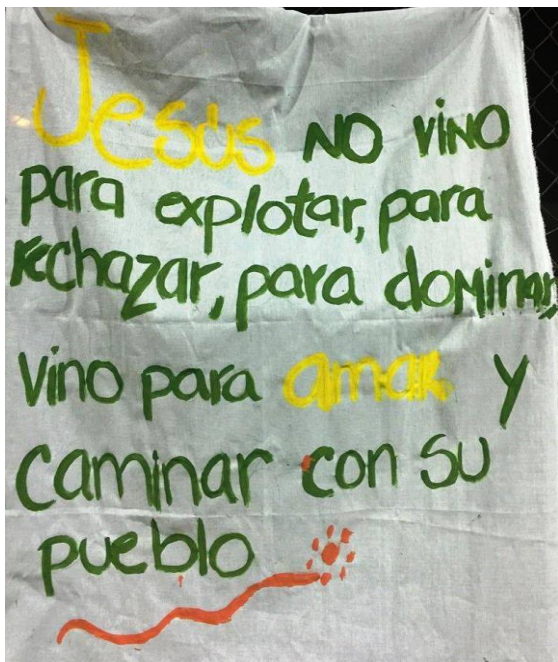 Jesús NO vino
para explotar, para
rechazar, para dominar,
vino para amar y
caminar con su
pueblo